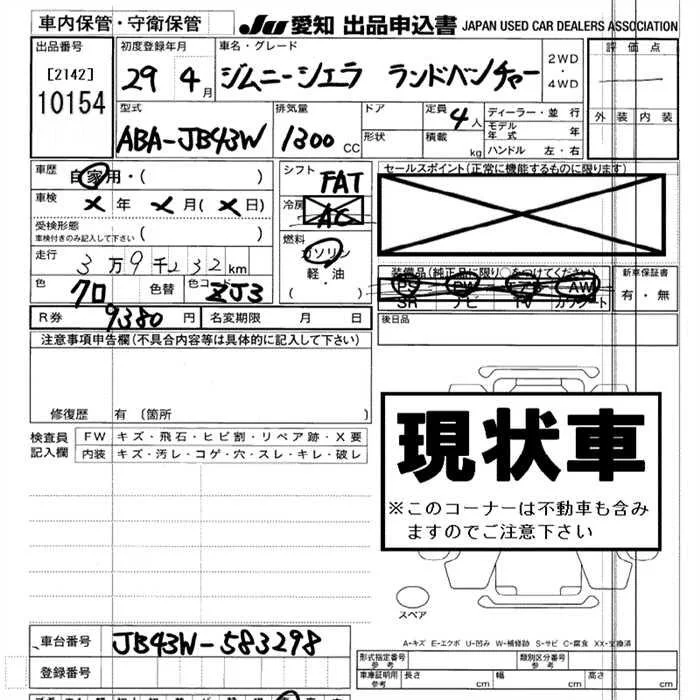 車内保管・守衛保管 JU 愛知 出品申込書 JAPAN USED CAR DEALERS ASSOCIATION
出品番号 [2142] 10154
初度登録年月 29 4月
車名・グレード ジムニーシエラ ランドベンチャー 2WD・4WD
評価点
外装 内装
型式 ABA-JB43W
排気量 1300 CC
ドア 形状
定員 4人 積載 kg
ディーラー・並行
モデル年式 年
ハンドル 左・右
車歴 自家用・( )
車検 × 年 × 月 ( × 日)
受検形態 車検付きのみ記入して下さい ( )
走行 3万9千232km
色 クロ 色替 色コード ZJ3
シフト FAT
冷房 AC
燃料 ガソリン 軽・油 ( )
セールスポイント(正常に機能するものに限ります)
装備品(純正品に限り○をつけてください)
PS PW エアB AW
SR ナビ TV カワシート
新車保証書 有・無
R券 9380円 名変期限 月 日
後日品
注意事項申告欄(不具合内容等は具体的に記入して下さい)
修復歴 有 (箇所 )
検査員記入欄
FW キズ・飛石・ヒビ割・リペア跡・X要
内装 キズ・汚レ・コゲ・穴・スレ・キレ・破レ
現状車
※このコーナーは不動車も含み
ますのでご注意下さい
スペア
A-キズ E-エクボ U-凹み W-補修跡 S-サビ C-腐食 XX-交換済
車台番号 JB43W-583298
登録番号
形式指定番号 参考 類別区分番号 参考
車庫証明用 参考 長さ cm 幅 cm 高さ cm